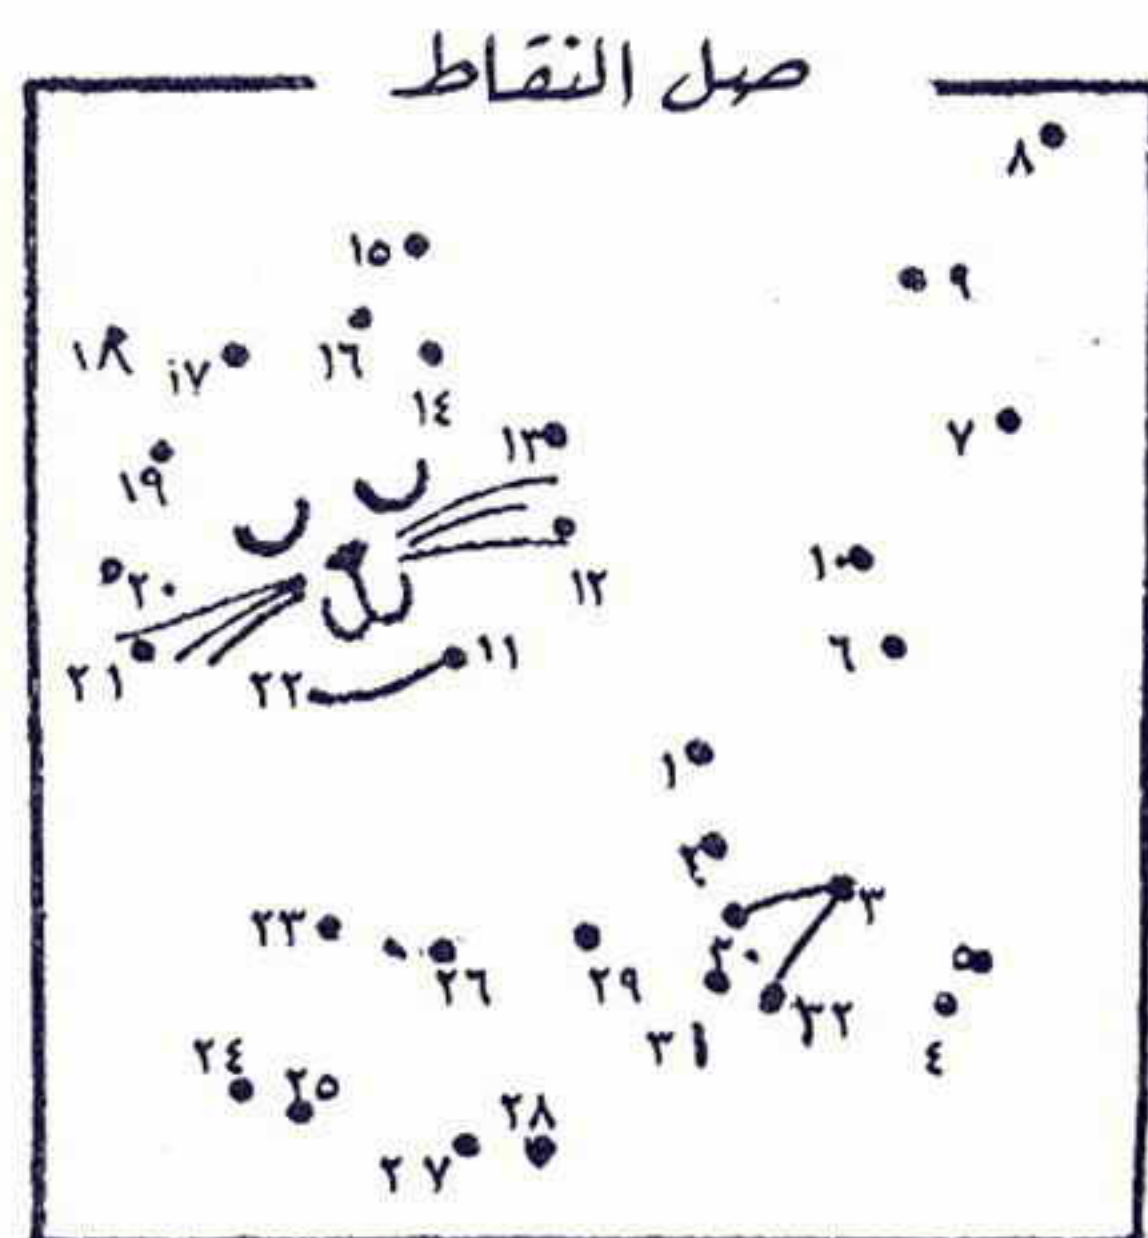 صل النقاط
٨
١٥
٩
١٨ ١٧ ١٦
١٤
٧
١٣
١٩
٢٠
١٢
١٠
٢١ ٢٢ ١١
٦
١
٣
٢٣ ٢٦ ٢٩ ٣٠
٣١ ٣٢ ٤
٢٤ ٢٥
٢٧ ٢٨